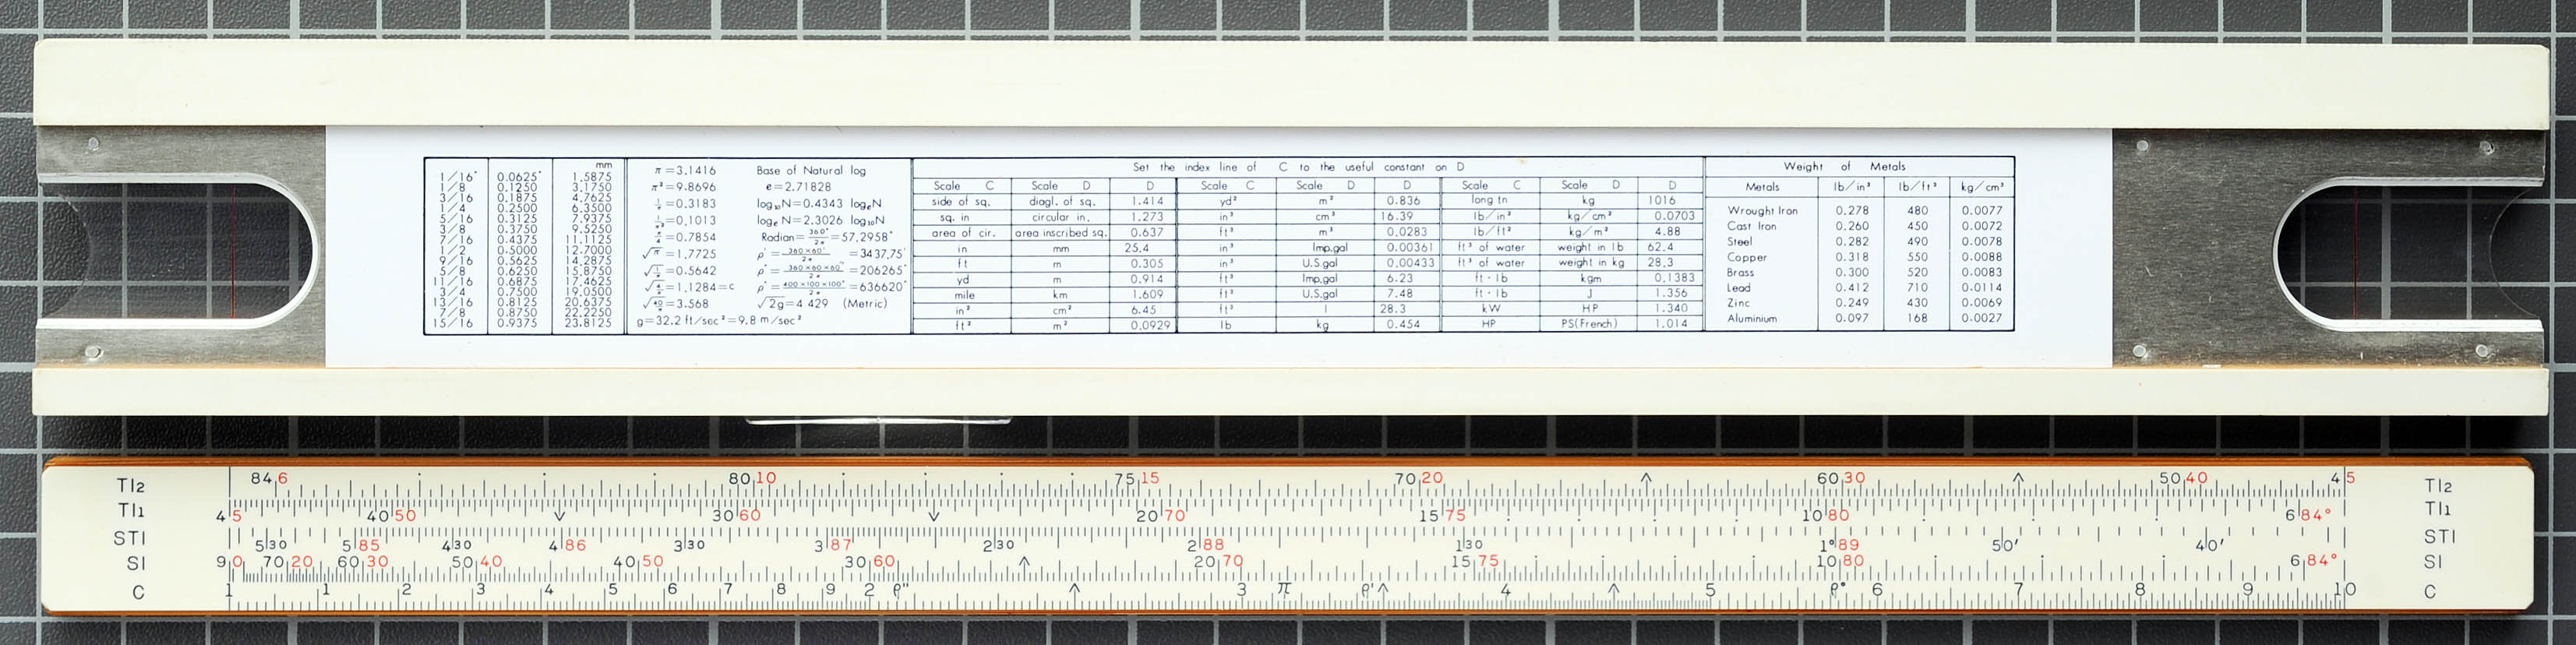 1/16" 0.0625" 1.5875 mm
1/8 0.1250 3.1750
3/16 0.1875 4.7625
1/4 0.2500 6.3500
5/16 0.3125 7.9375
3/8 0.3750 9.5250
7/16 0.4375 11.1125
1/2 0.5000 12.7000
9/16 0.5625 14.2875
5/8 0.6250 15.8750
11/16 0.6875 17.4625
3/4 0.7500 19.0500
13/16 0.8125 20.6375
7/8 0.8750 22.2250
15/16 0.9375 23.8125
π=3.1416 Base of Natural log
π²=9.8696 e=2.71828
1/π=0.3183 log₁₀N=0.4343 logₑN
1/π²=0.1013 logₑN=2.3026 log₁₀N
π/4=0.7854 Radian=360°/2π=57.2958°
√π=1.7725 ρ'=360×60'/2π=3437.75'
√1/π=0.5642 ρ"=360×60×60"/2π=206265"
√4/π=1.1284=c ρ"=400×100×100"/2π=636620"
√40/π=3.568 √2g=4 429 (Metric)
g=32.2 ft/sec²=9.8 m/sec²
Set the index line of C to the useful constant on D
Scale C Scale D D Scale C Scale D D Scale C Scale D D
side of sq. diagl. of sq. 1.414 yd² m² 0.836 long tn kg 1016
sq. in circular in. 1.273 in³ cm³ 16.39 lb/in² kg/cm² 0.0703
area of cir. area inscribed sq. 0.637 ft³ m³ 0.0283 lb/ft² kg/m² 4.88
in mm 25.4 in³ Imp.gal 0.00361 ft³ of water weight in lb 62.4
ft m 0.305 in³ U.S.gal 0.00433 ft³ of water weight in kg 28.3
yd m 0.914 ft³ Imp.gal 6.23 ft·lb kgm 0.1383
mile km 1.609 ft³ U.S.gal 7.48 ft·lb J 1.356
in² cm² 6.45 ft³ l 28.3 kW HP 1.340
ft² m² 0.0929 lb kg 0.454 HP PS(French) 1.014
Weight of Metals
Metals lb/in³ lb/ft³ kg/cm³
Wrought Iron 0.278 480 0.0077
Cast Iron 0.260 450 0.0072
Steel 0.282 490 0.0078
Copper 0.318 550 0.0088
Brass 0.300 520 0.0083
Lead 0.412 710 0.0114
Zinc 0.249 430 0.0069
Aluminium 0.097 168 0.0027
TI2 84 6 80 10 75 15 70 20 60 30 50 40 45 TI2
TI1 45 40 50 30 60 20 70 15 75 10 80 6 84° TI1
STI 5 30 5 85 4 30 4 86 3 30 3 87 2 30 2 88 1 30 1° 89 50' 40' STI
SI 90 70 20 60 30 50 40 40 50 30 60 20 70 15 75 10 80 6 84° SI
C 1 1 2 3 4 5 6 7 8 9 2 ρ" 3 π ρ' 4 5 ρ° 6 7 8 9 10 C